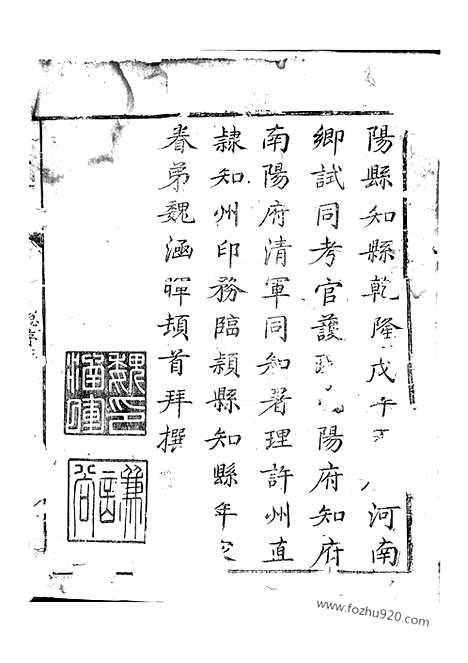 陽縣知縣乾隆戊午 河南
鄉試同考官護 陽府知府
南陽府清軍同知署理許州直
隸知州印務臨頴縣知縣年
眷弟魏涵暉頓首拜撰
魏印涵暉
www.fozhu920.com